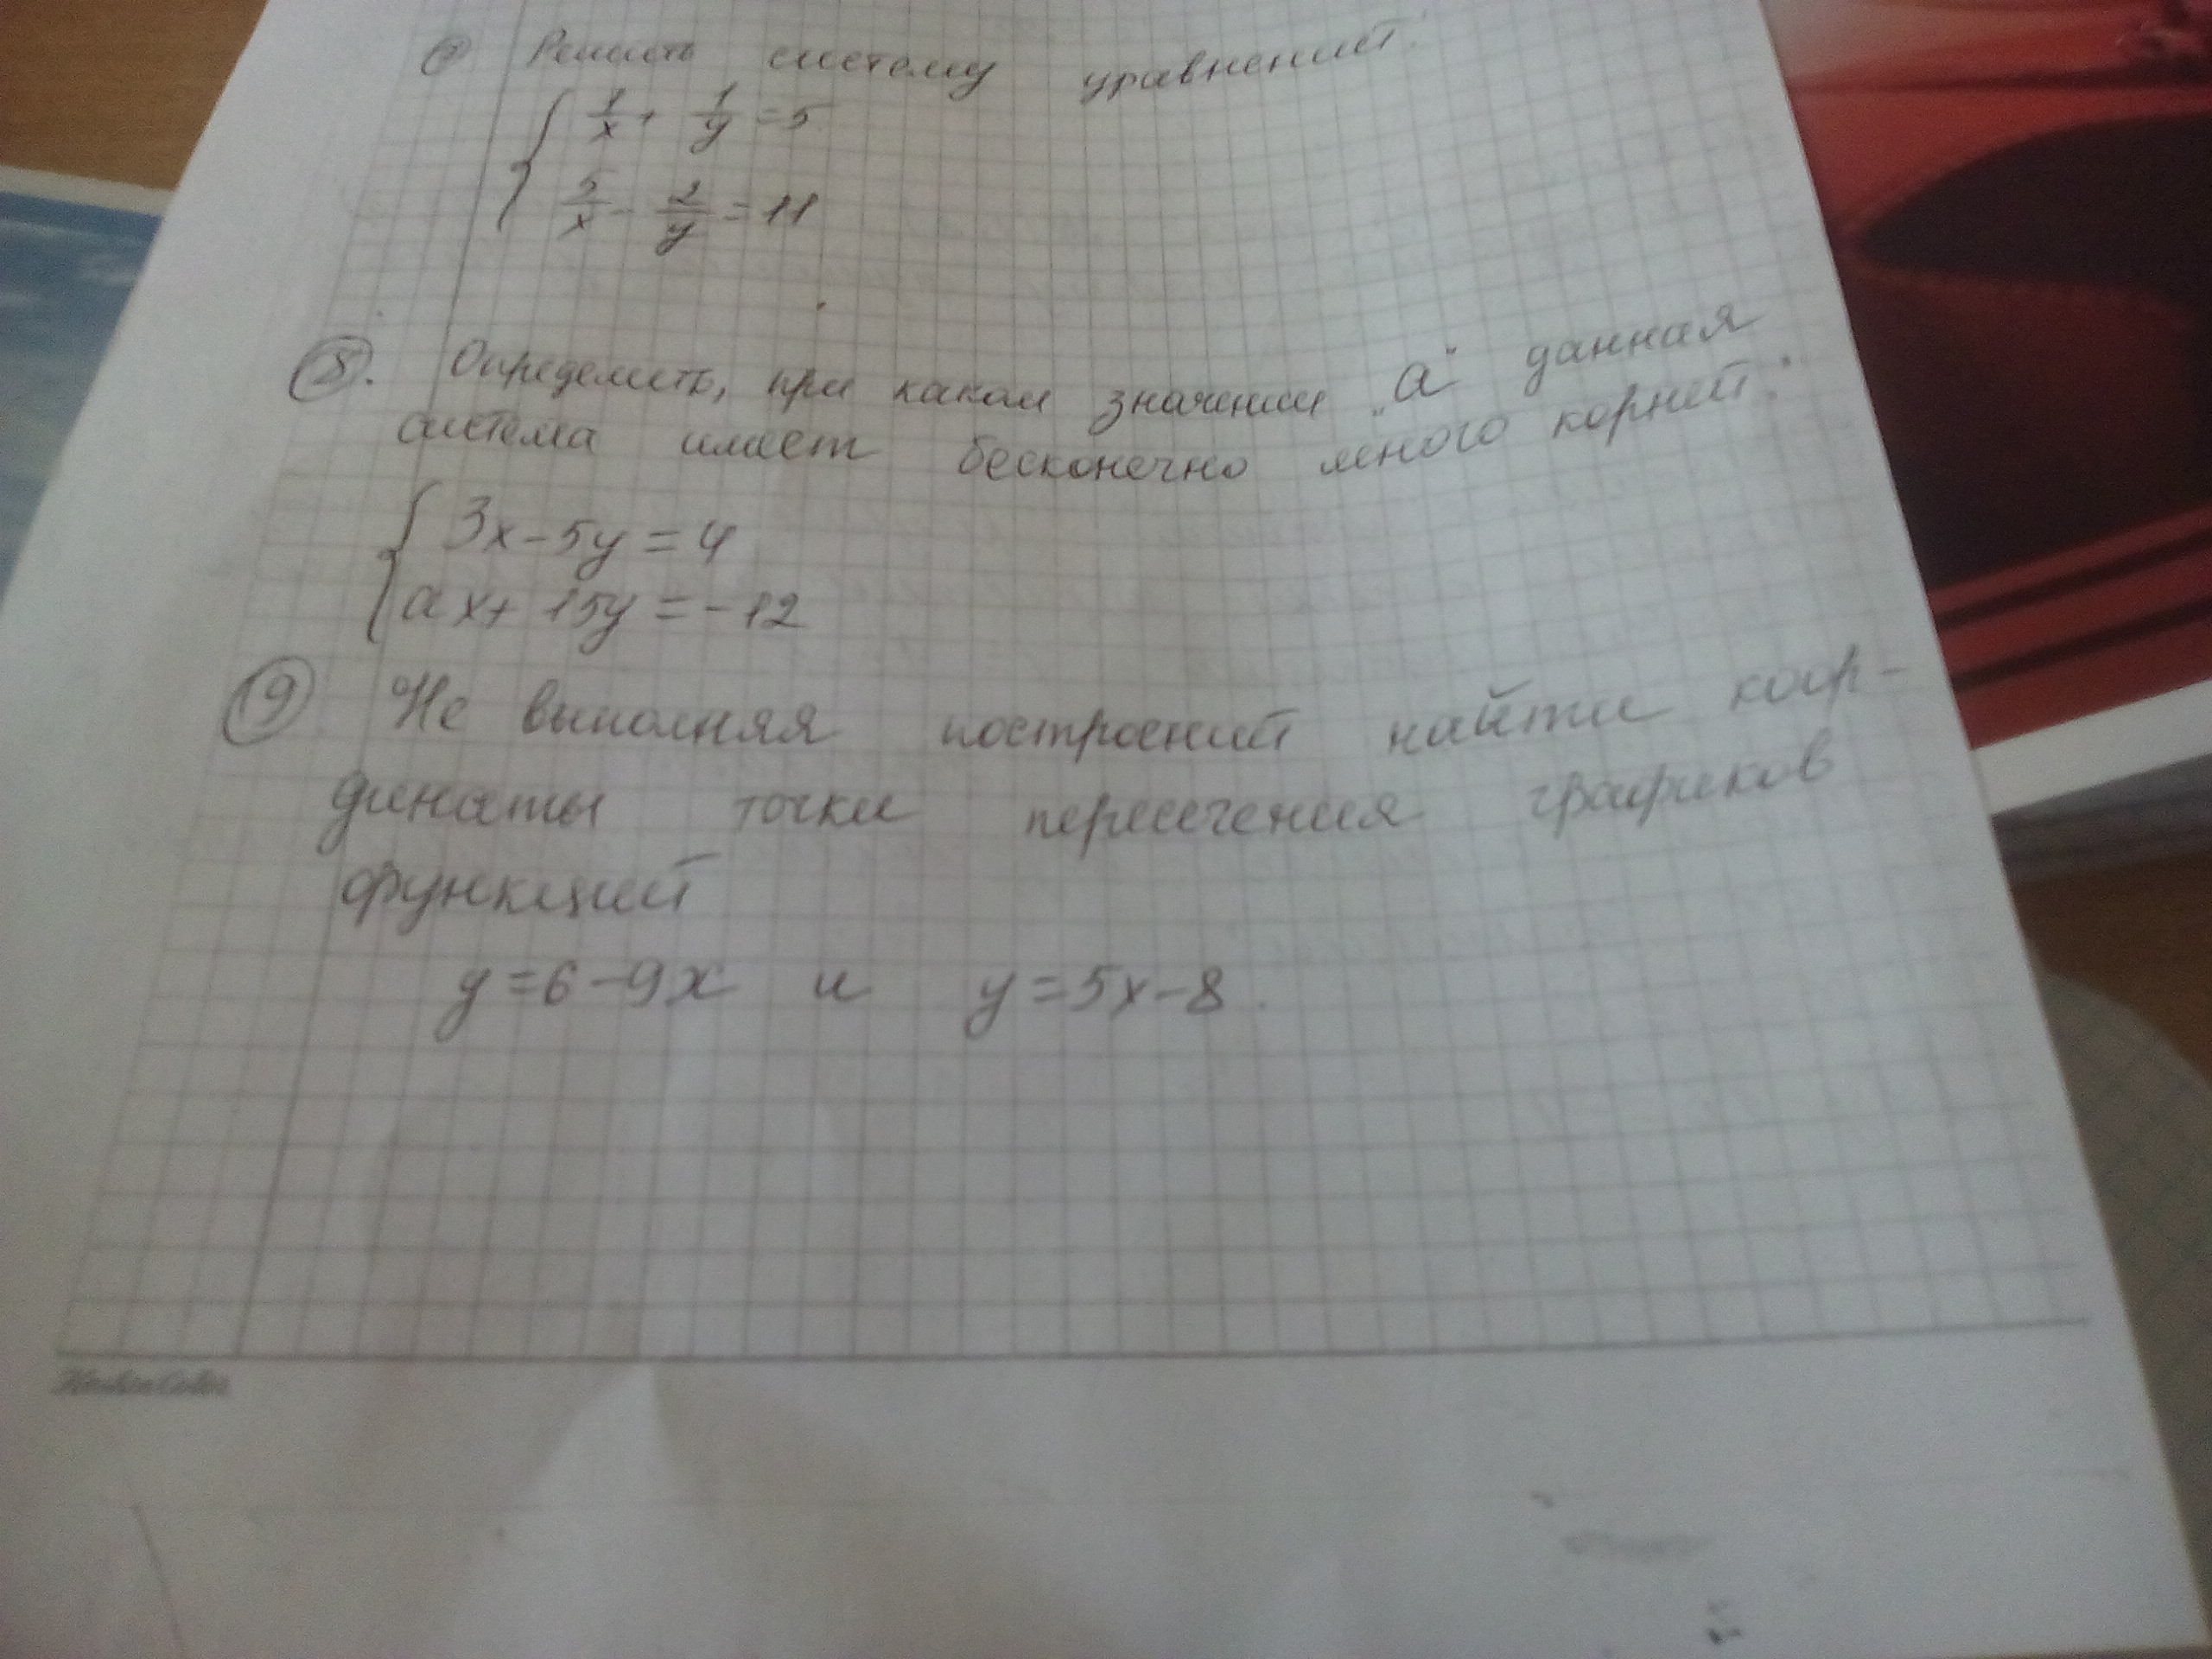 ⑦ Решить систему уравнений:
1/x + 1/y = 5
5/x - 2/y = 11
⑧. Определить, при каком значении „a" данная
система имеет бесконечно много корней:
3x-5y=4
ax+15y=-12
⑨ Не выполняя построений найти коор-
динаты точки пересечения графиков
функций
y=6-9x и y=5x-8.